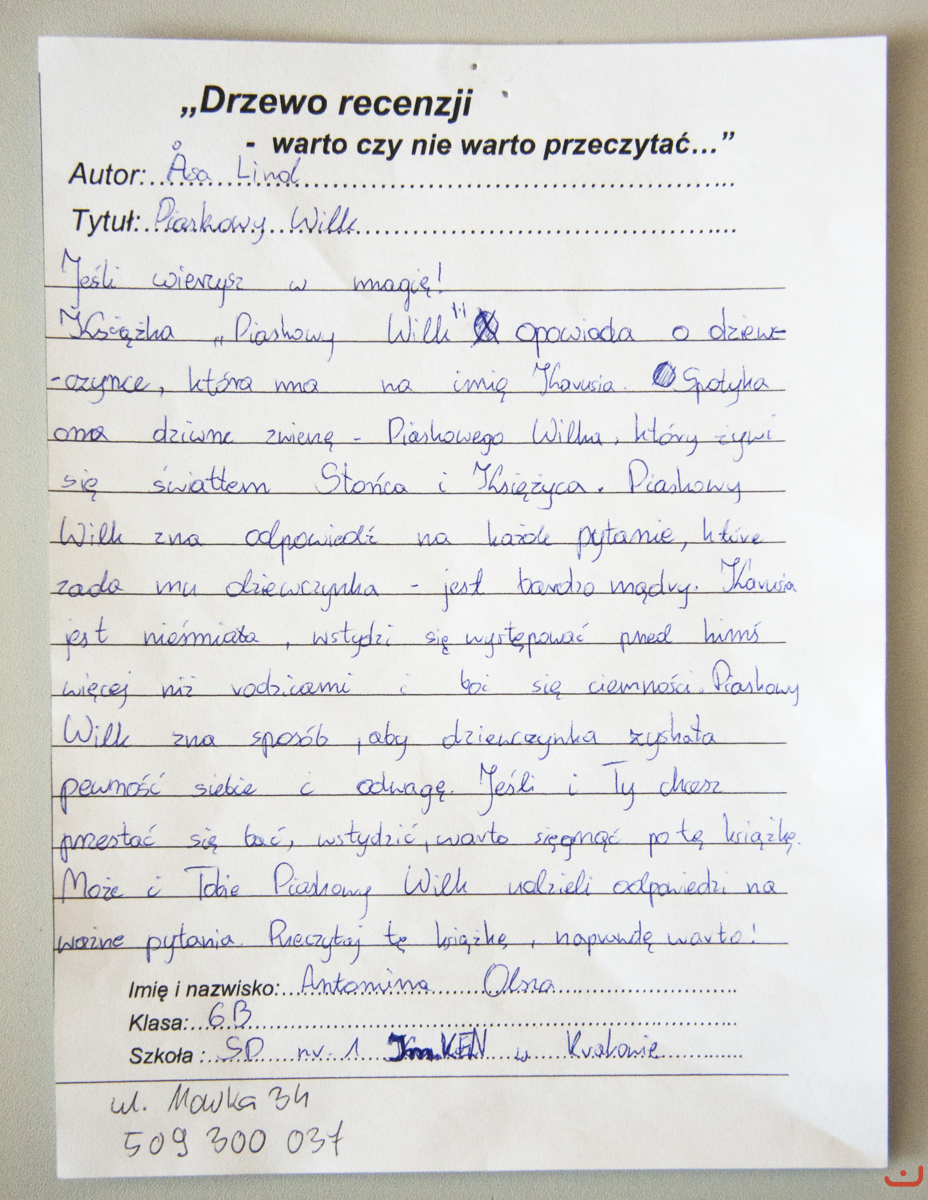 „Drzewo recenzji
- warto czy nie warto przeczytać...”
Autor: Åsa Lind
Tytuł: Piaskowy Wilk
Jeśli wierzysz w magię!
Książka „Piaskowy Wilk" opowiada o dziew-
-czynce, która ma na imię Karusia. Spotyka
ona dziwne zwierzę - Piaskowego Wilka, który żywi
się światłem Słońca i Księżyca. Piaskowy
Wilk zna odpowiedź na każde pytanie, które
zada mu dziewczynka - jest bardzo mądry. Karusia
jest nieśmiała, wstydzi się występować przed kimś
więcej niż rodzicami i boi się ciemności. Piaskowy
Wilk zna sposób, aby dziewczynka zyskała
pewność siebie i odwagę. Jeśli i Ty chcesz
przestać się bać, wstydzić, warto sięgnąć po tę książkę.
Może i Tobie Piaskowy Wilk udzieli odpowiedzi na
ważne pytania. Przeczytaj tę książkę, naprawdę warto!
Imię i nazwisko: Antonina Olsza
Klasa: 6B
Szkoła: SP nr. 1 Im. KEN w Krakowie
ul. Mowka 34
509 300 037